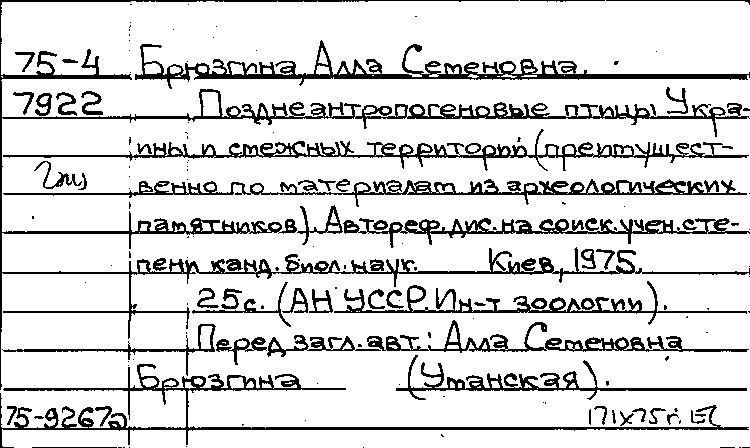 75-4 Брюзгина, Алла Семеновна.
7922 Позднеантропогеновые птицы Укра-
ины и смежных территорий (преимущест-
венно по материалам из археологических
памятников). Автореф. дис. на соиск. учен. сте-
пени канд. биол. наук. Киев, 1975.
25с. (АН УССР. Ин-т зоологии).
Перед загл. авт.: Алла Семеновна
Брюзгина (Уманская).
75-9267а 171x75г.